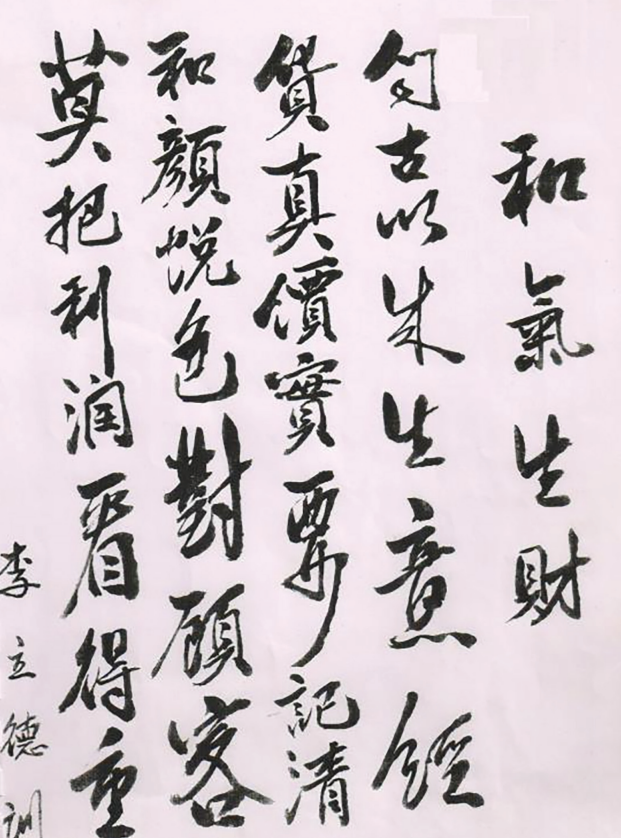 和氣生財
自古以来生意經
貨真價實要記清
和顔悦色對顧客
莫把利润看得重
李立德訓